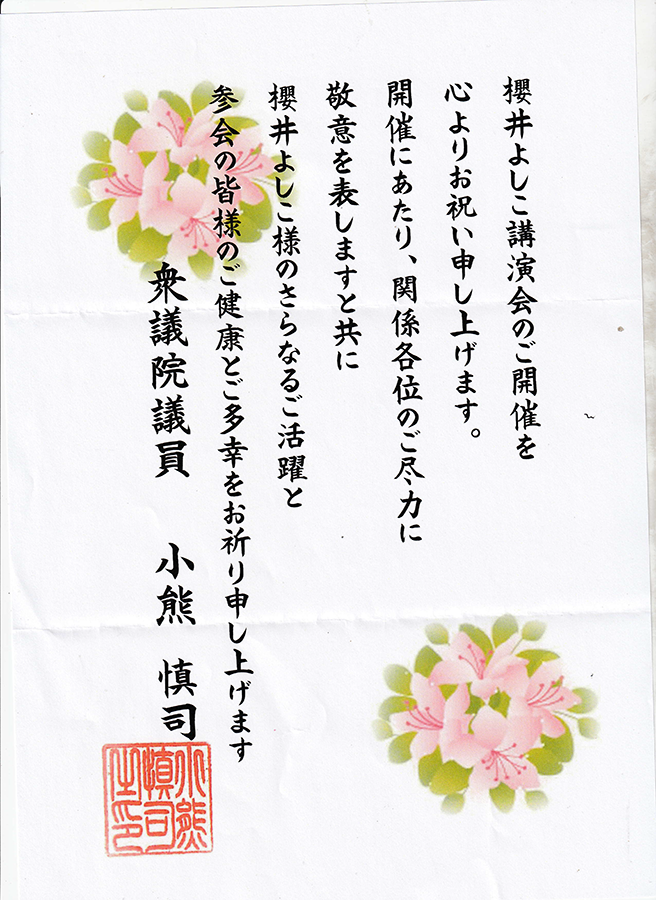 櫻井よしこ講演会のご開催を
心よりお祝い申し上げます。
開催にあたり、関係各位のご尽力に
敬意を表しますと共に
櫻井よしこ様のさらなるご活躍と
参会の皆様のご健康とご多幸をお祈り申し上げます
衆議院議員 小熊 慎司
小熊
慎司
之印